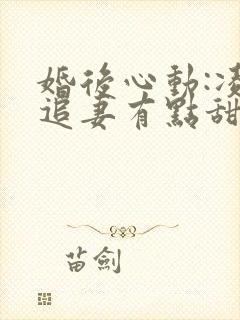 婚後心動:凌
追妻有點甜
苗劍